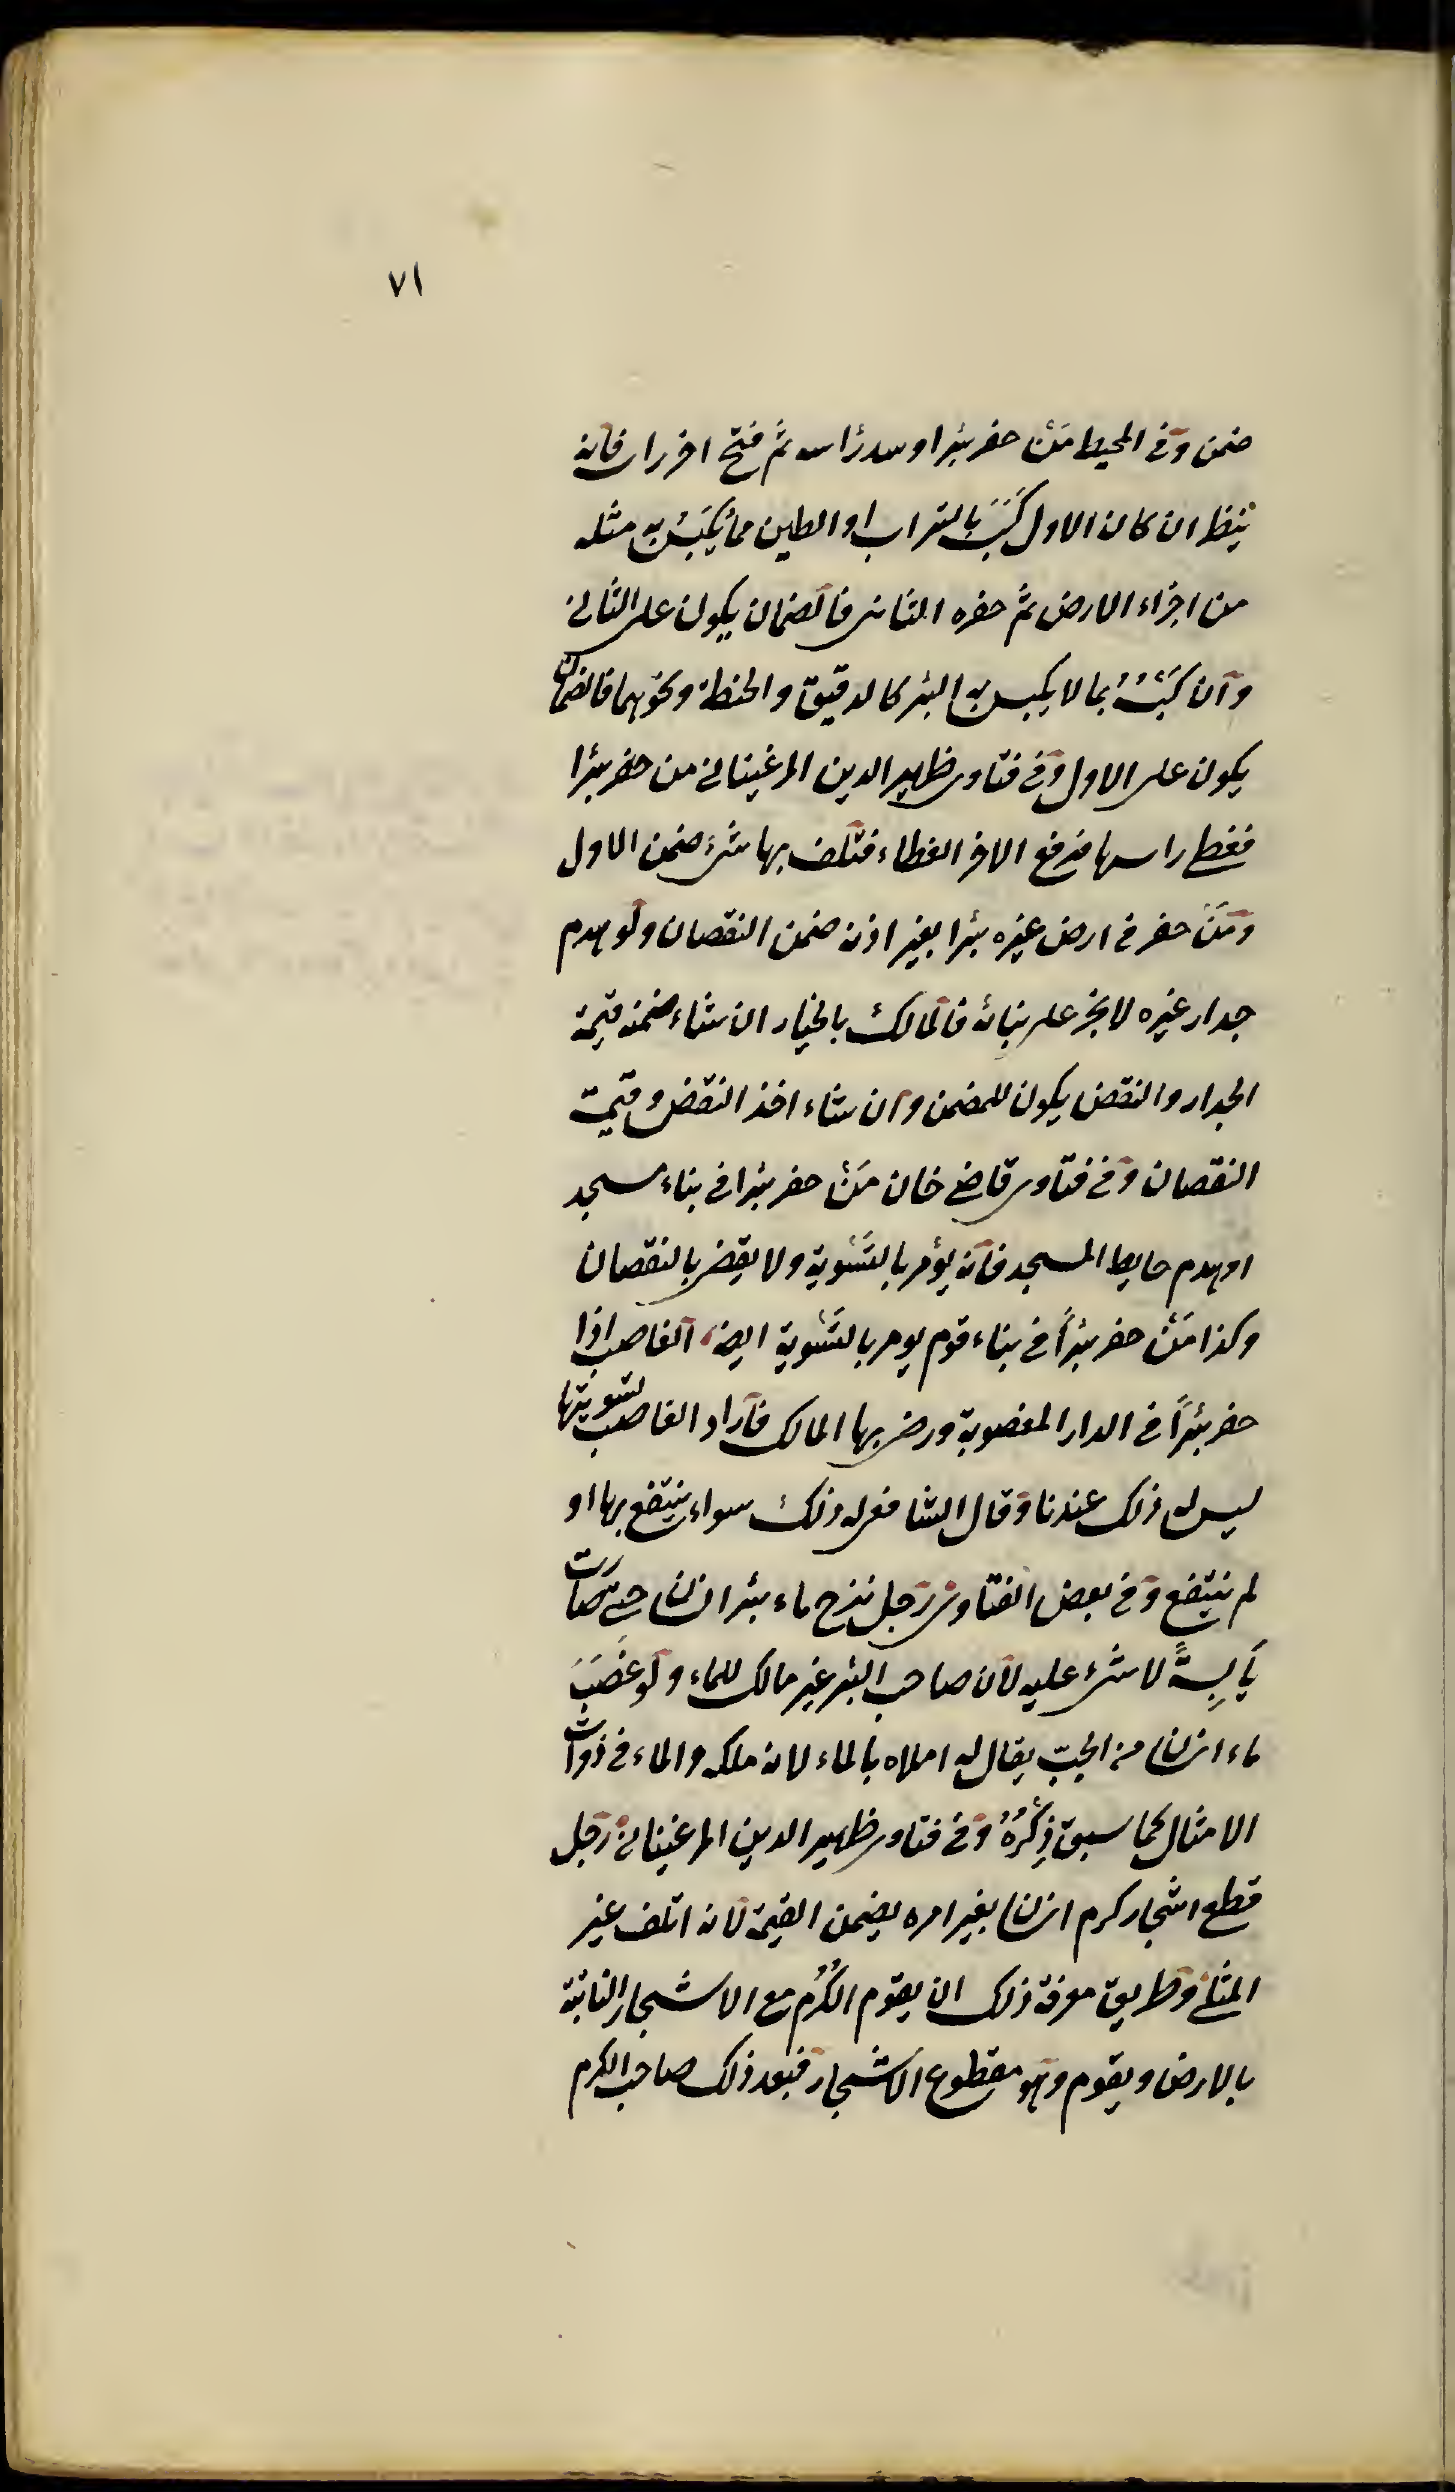 ٧١
ضمن وفى المحيط مَنْ حفر بئرا وسد راسه ثم فتح اخر راسه فانه
ينظر ان كان الاول كَبَسَ بالتراب او الطين مما يُكبَسُ به مثله
من اجزاء الارض ثم حفره الثانى فالضمان يكون على الثانى
وان كَبَسَهُ بما لا يكبس به البئر كالدقيق والحنطة ونحوهما فالضمان
يكون على الاول وفى فتاوى ظهير الدين المرغينانى من حفر بئرا
فغطى راسها فرفع الاخر الغطاء فتلف بها شىء ضمن الاول
ومَنْ حفر فى ارض غيره بئرا بغير اذنه ضمن النقصان ولو هدم
جدار غيره لا يجبر على بنائه فالمالك بالخيار ان شاء ضمنه قيمة
الجدار والنقض يكون للمضمن وان شاء اخذ النقض وقيمت
النقصان وفى فتاوى قاضى خان مَنْ حفر بئرا فى بناء مسجد
او هدم حايط المسجد فانه يؤمر بالتَّسْوية ولا يقضى بالنقصان
وكذا مَنْ حفر بئراً فى بناء قوم يومر بالتَّسْوية ايضا الغاصب اذا
حفر بئراً فى الدار المغصوبة ورضى بها المالك فاراد الغاصب تسويتها
ليس له ذلك عندنا وقال الشافعى له ذلك سواء ينتفع بها او
لم ينتفع وفى بعض الفتاوى رجل نزح ماء بئر انسان حتى صارت
يَابِسةً لا شىء عليه لان صاحب البئر غير مالك للماء ولو غَصَبَ
ماء انسان من الجبّ يقال له املاه بالماء لانه ملكه والماء فى ذوات
الامثال كما سبق ذِكْرُهُ وفى فتاوى ظهير الدين المرغينانى رجل
قطع اشجار كرم انسان بغير امره يضمن القيمة لانه اتلف غير
المثلى وطريق معرفة ذلك ان يقوم الكَرْم مع الاشجار النابتة
بالارض ويقوم وهو مقطوع الاشجار فبعد ذلك صاحب الكرم